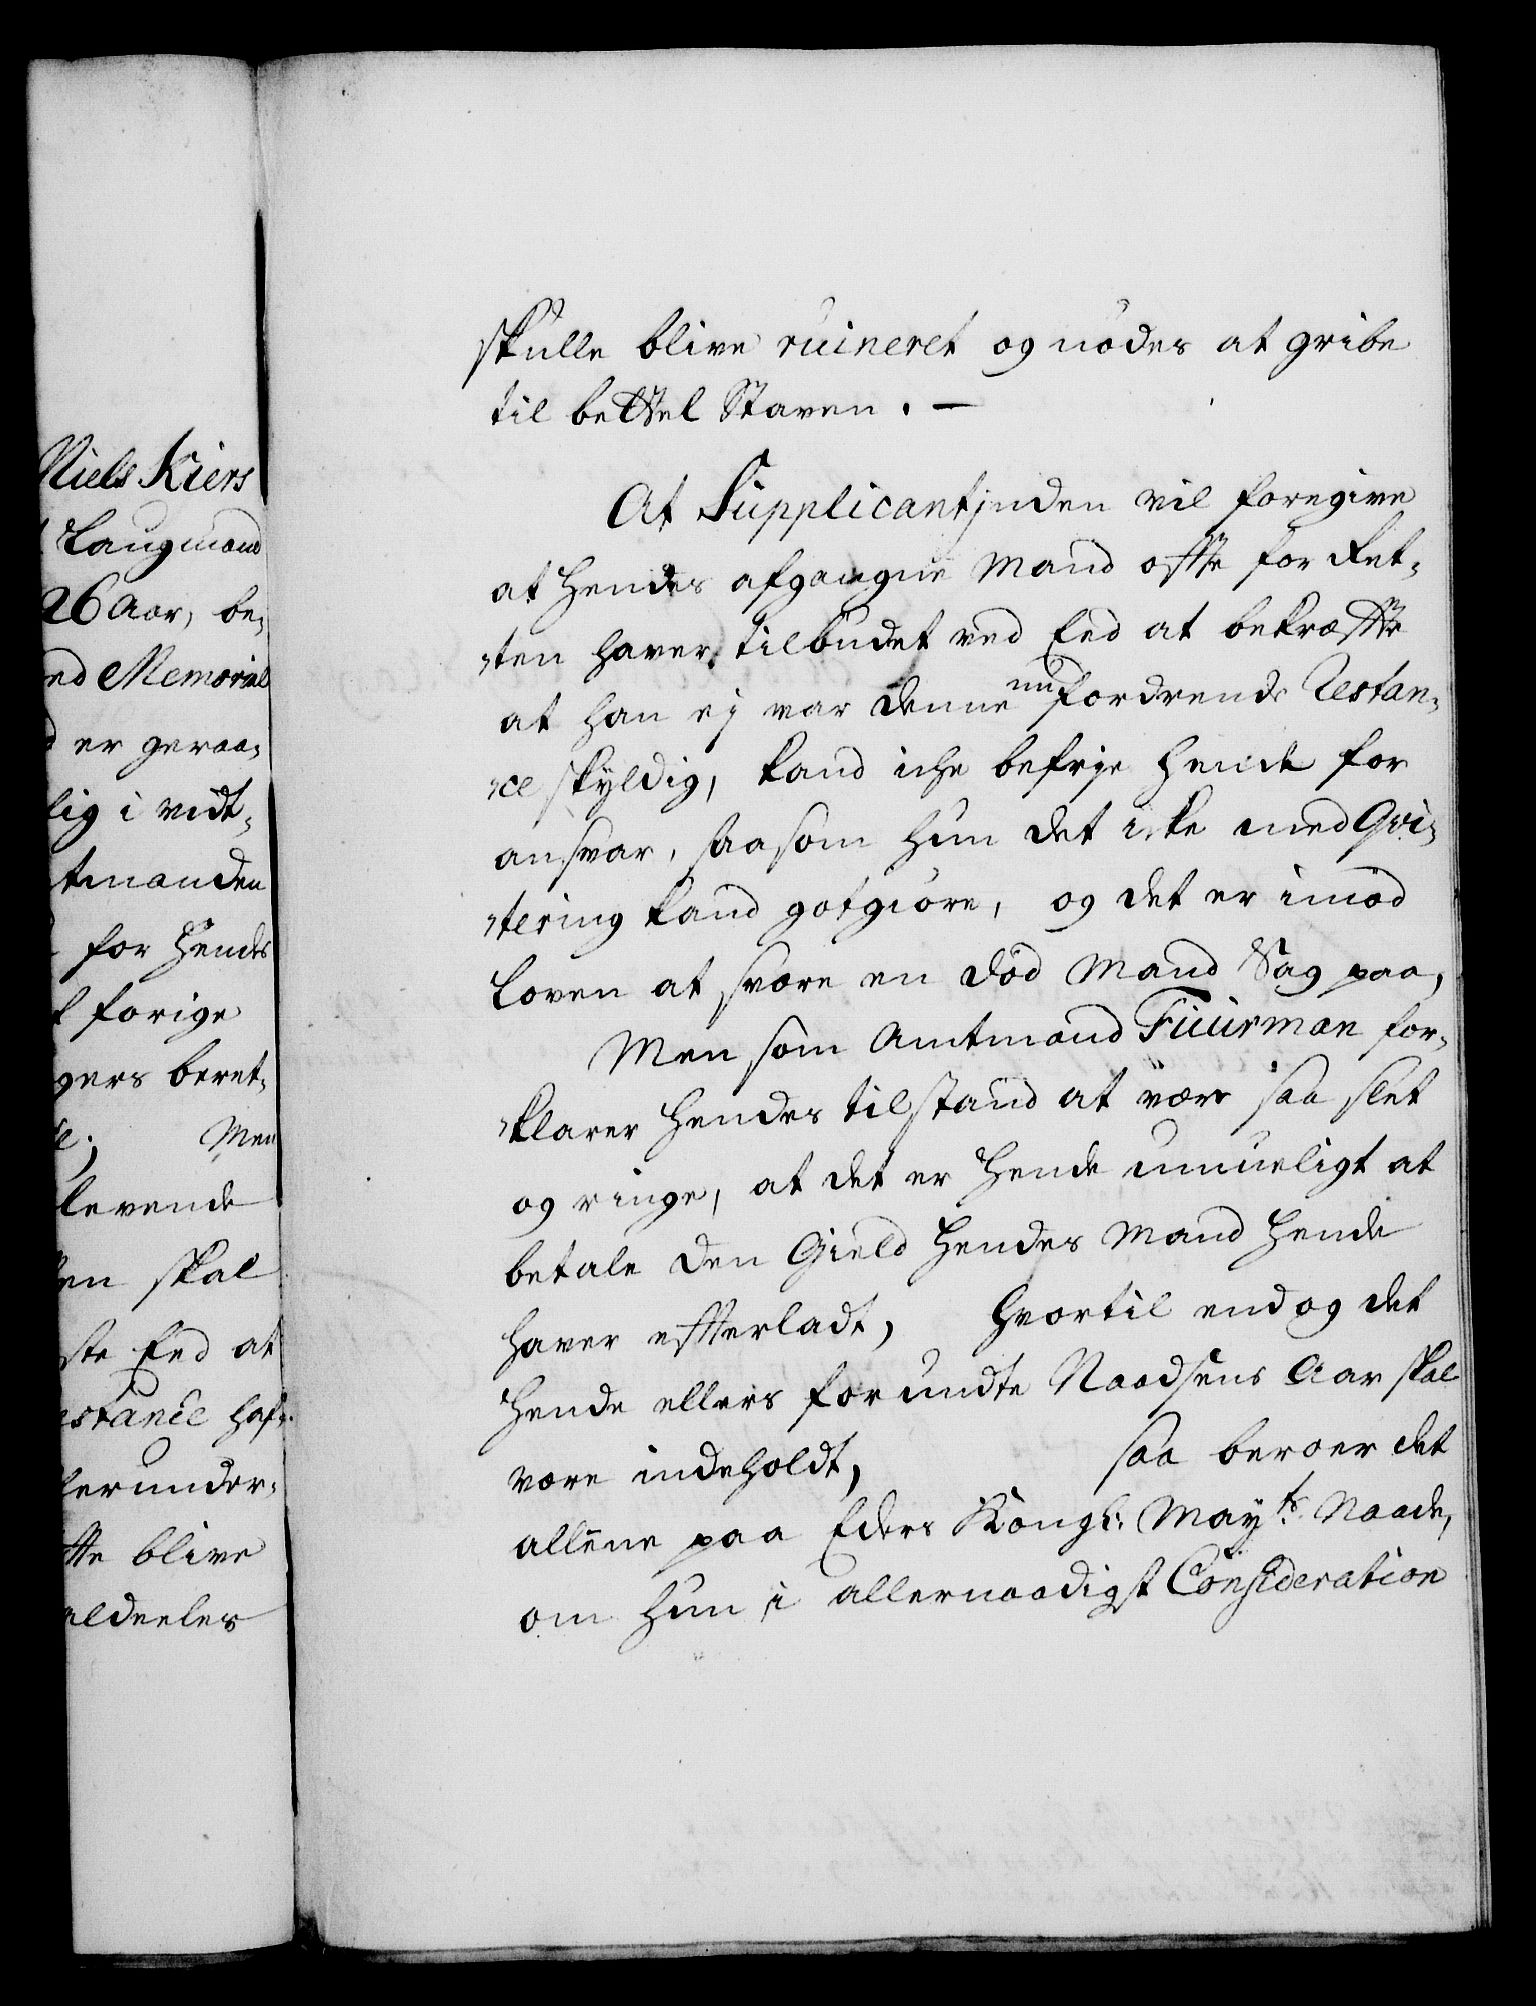 Niels Kiers
Laugmand
26 Aar, be-
nd Memorial
d er geraa-
lig i vidt-
tmanden
for Hendes
forige
gers beret-
Men
levende
en skal
ste Eed at
estance haf-
herunder-
tte blive
aldeeles
skulle blive ruineret og nødes at gribe
til bettel Staven. —
At Supplicantjnden vil foregive
at Hendes afgangne Mand offte for Ret-
ten haver tilbudet ved Eed at bekræffte
at han ej var denne nu fordrende Restan-
ce skyldig, kand iche befrje Hende for
ansvar, saasom hun det icke med Qvi-
tering kand gotgiøre, og det er imod
Loven at svære en død Mand Sag paa,
Men som Amtmand Fuurman for-
klarer Hendes tilstand at være saa slet
og ringe, at det er Hende umueligt at
betale den Gield Hendes Mand Hende
haver effterladt, Hvortil endog det
Hende ellers forundte Naadsens Aar skal
være indeholdt, saa beroer det
alleene paa Eders Kongl: Mayts. Naade,
om hun i allernaadigst Consideration